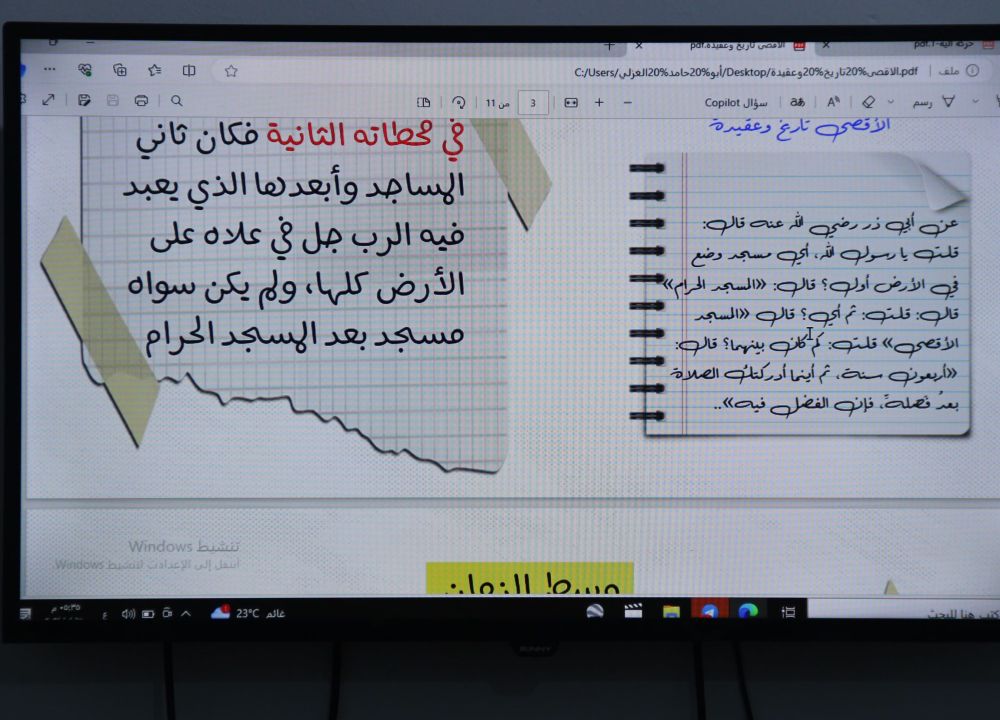 الاقصى تاريخ وعقيدة.pdf
ملف
C:/Users/أبو%20حامد%20الغزلي/Desktop/الاقصى%20تاريخ%20وعقيدة.pdf
رسم
سؤال Copilot
3
من 11
الأقصى تاريخ وعقيدة
عن أبي ذر رضي الله عنه قال:
قلت يا رسول الله، أي مسجد وضع
في الأرض أول؟ قال: «المسجد الحرام»
قال: قلت: ثم أي؟ قال «المسجد
الأقصى» قلت: كم كان بينهما؟ قال:
«أربعون سنة، ثم أينما أدركتك الصلاة
بعدُ فَصلهَ، فإن الفضل فيه»..
في محطاته الثانية فكان ثاني
المساجد وأبعدها الذي يعبد
فيه الرب جل في علاه على
الأرض كلها، ولم يكن سواه
مسجد بعد المسجد الحرام
وسط الزمان
تنشيط Windows
انتقل إلى الإعدادات لتنشيط Windows.
هنا للبحث
غائم 23°C
ع
٠٥:٣٥ م
SUNNY